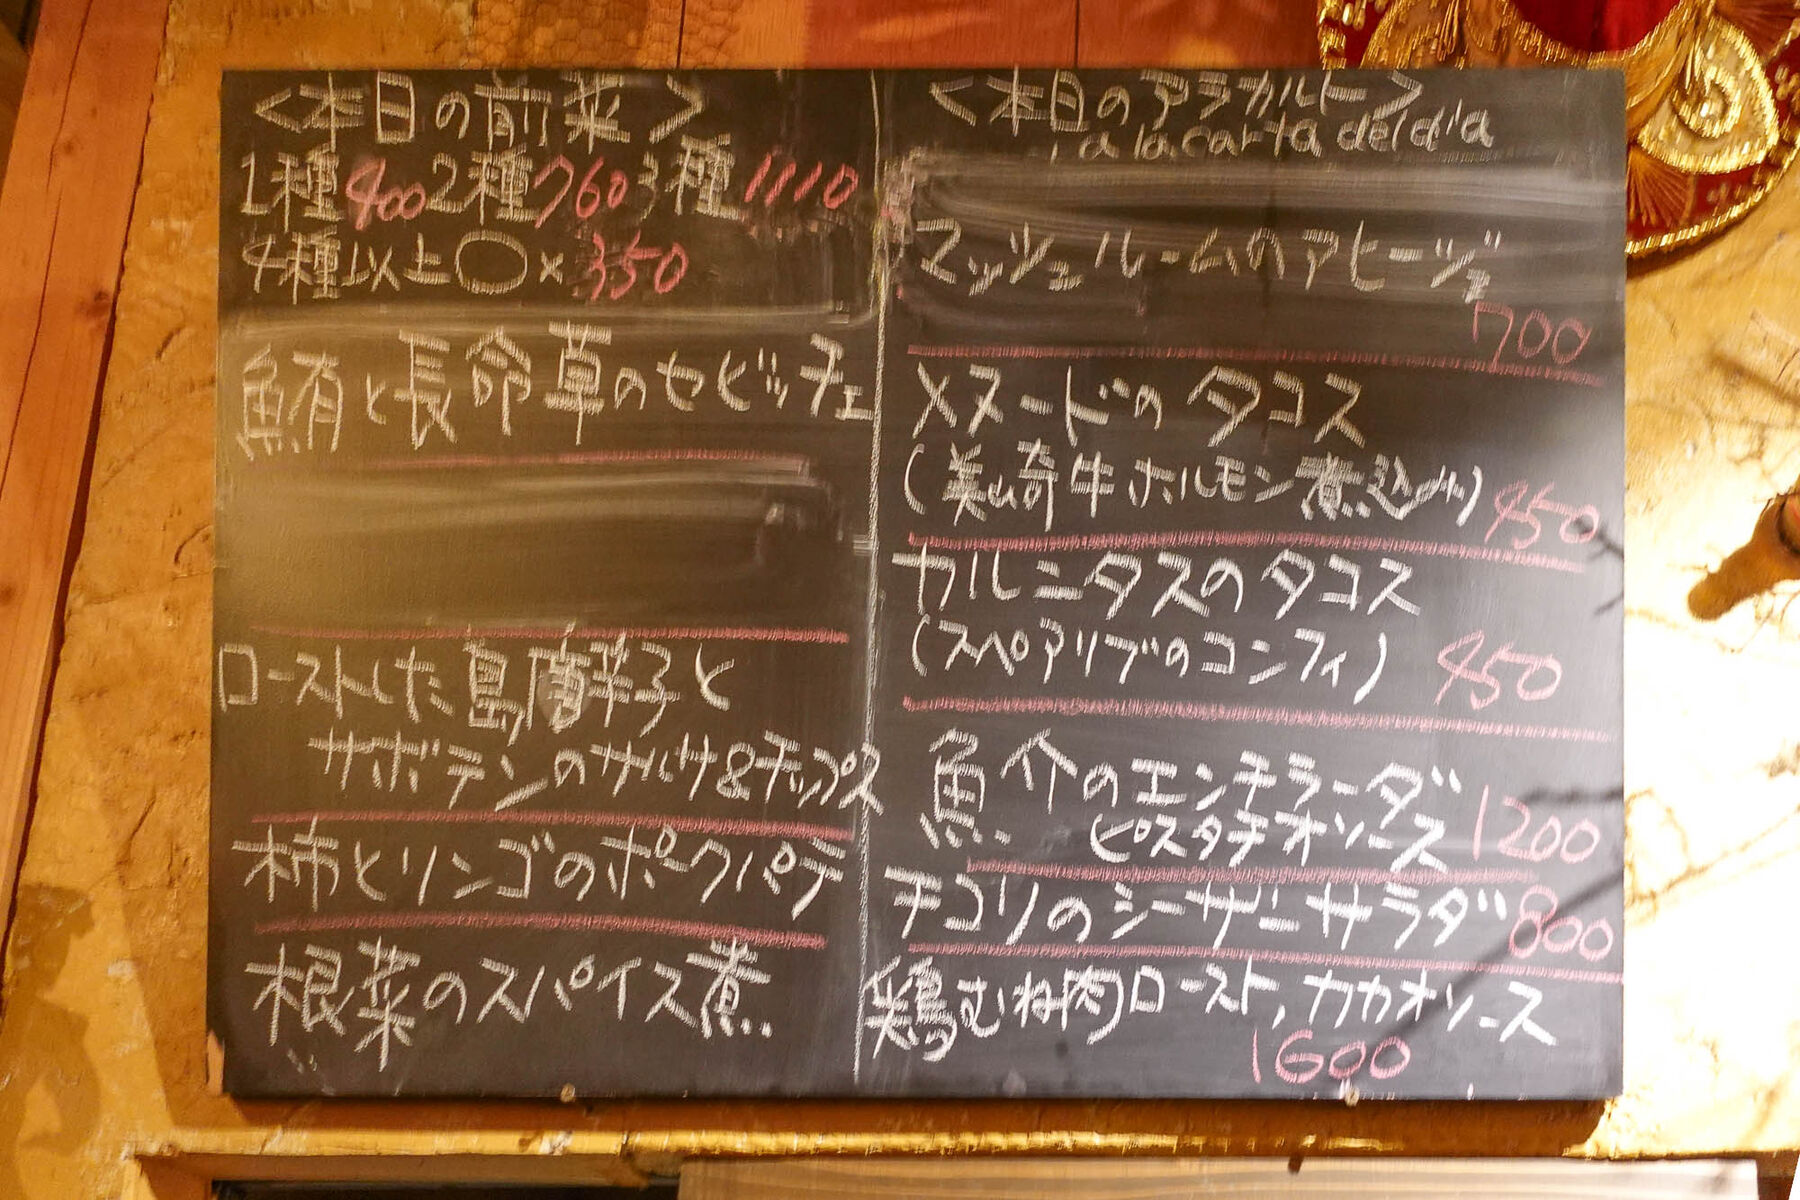 <本日の前菜>
1種400 2種760 3種1110
4種以上〇×350
鮪と長命草のセビッチェ
ローストした島唐辛子と
サボテンのサルサ&チップス
柿とリンゴのポークパテ
根菜のスパイス煮
<本日のアラカルト>
a la carta del dia
マッシュルームのアヒージョ
700
メヌードのタコス
(美崎牛ホルモン煮込み) 450
カルニタスのタコス
(スペアリブのコンフィ) 450
魚介のエンチラーダ
ピスタチオソース 1200
チコリのシーザーサラダ 800
鶏むね肉ロースト,カカオソース
1600